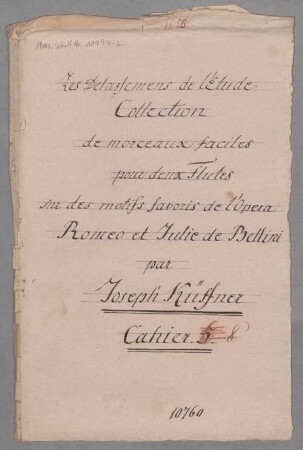 Mus. Schott Ha 11494-2
Les Delassemens de l'Etude
Collection
de morceaux faciles
pour deux Flutes
sur des motifs favoris de l'Opera
Romeo et Julie de Bellini
par
Joseph Küffner
Cahier. 8
10760